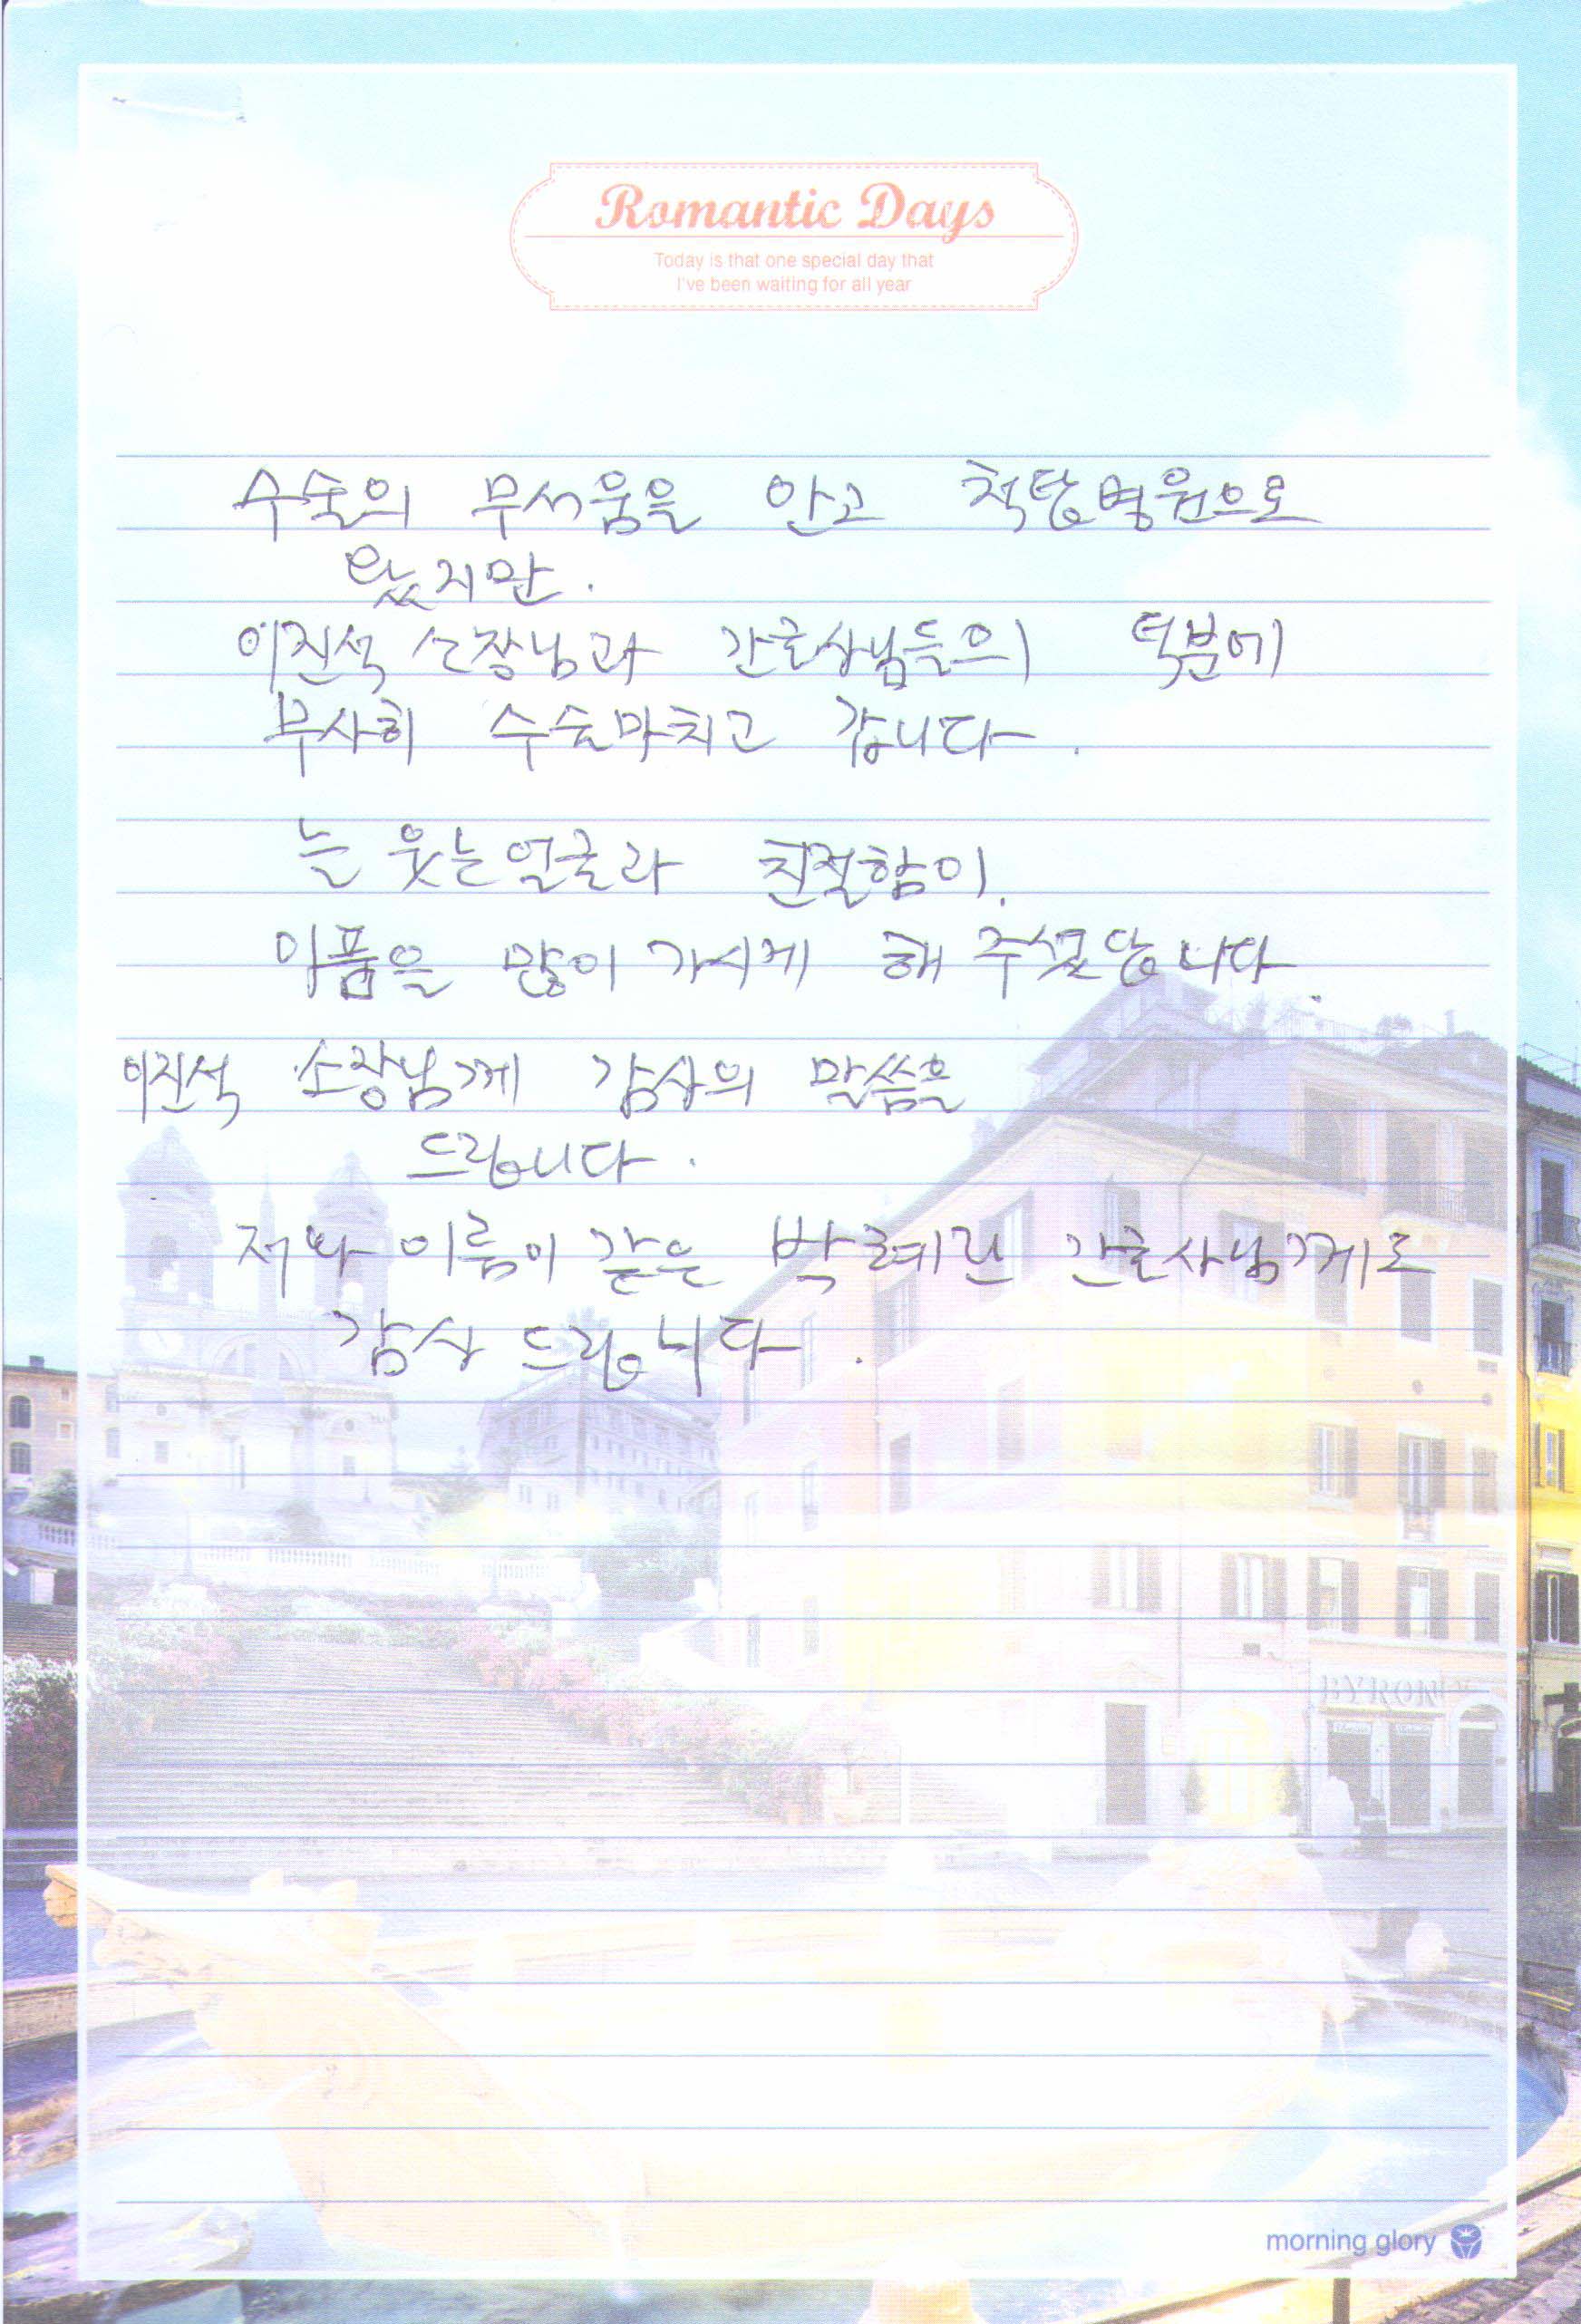 Romantic Days
Today is that one special day that
I've been waiting for all year
수술의 무서움을 안고 척탑병원으로
왔지만.
이진석 소장님과 간호사님들의 덕분에
무사히 수술마치고 갑니다.
늘 웃는얼굴과 친절함이.
아픔을 많이 가시게 해 주셨답니다.
이진석 소장님께 감사의 말씀을
드립니다.
저와 이름이 같은 박혜란 간호사님께도
감사 드립니다.
BYRON
morning glory